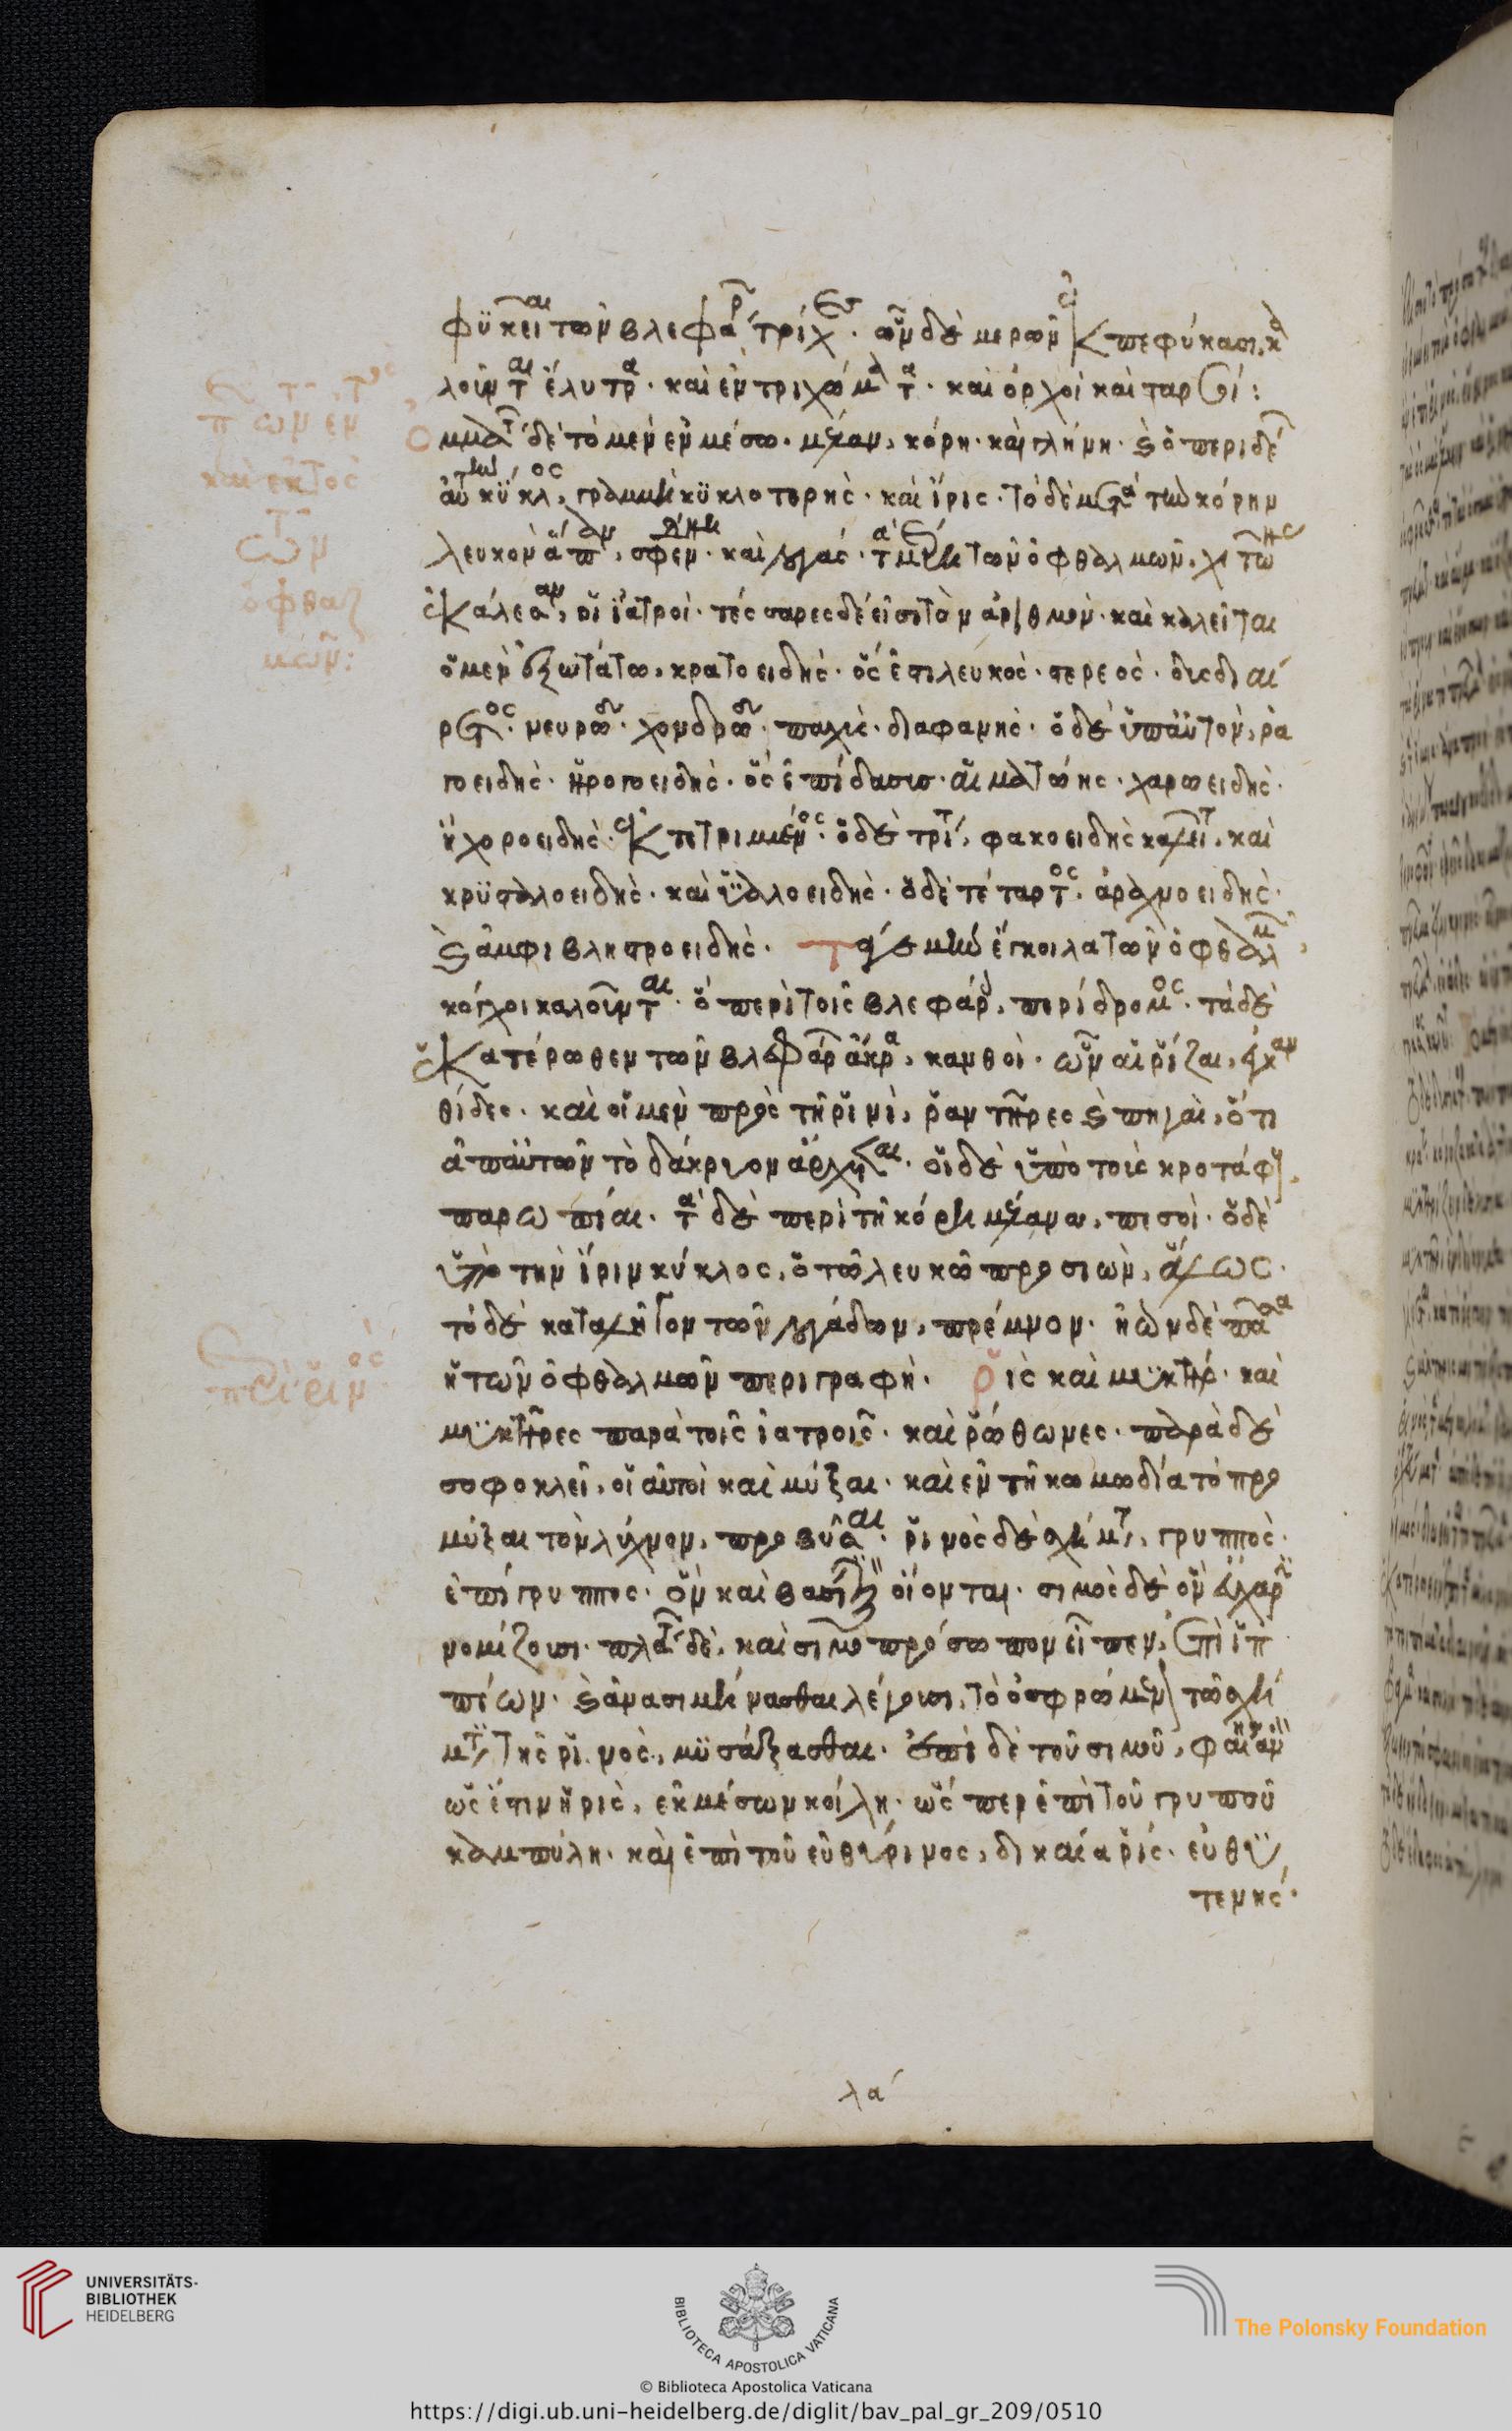 φϋκειται των βλεφάρ τρίχες. ὧν δὲ μερῶν ἐκπεφύκασι, κα
λοῦνται ἔλυτρα. καὶ ἐν τριχώματα. καὶ ὀρχοὶ καὶ ταρσοί:
ὄμματ δὲ τὸ μὲν ἐν μέσω. μέλαν, κόρη. καὶ γλήνη. καὶ ὁ περιδὲ
αὐτὴν κύκλος, γραμμὴ κϋκλοτερης. καὶ ἶρις. τὸ δὲ μετὰ τὴν κόρην
λευκὸν ἅπαν, σφενδόνη. καὶ λογάς. τὰ μέρη τῶν ὀφθαλμῶν. χιτῶνες
ἐκάλεσαν, οἱ ἰατροί. τέσσαρες δέ εἰσι τὸν ἀριθμὸν. καὶ καλεῖται
ὁ μὲν ἐξωτάτω, κρατοειδής. ὅς ἐστι λευκος. στερεος. δυσδιαί
ρετος. νευρώδης. χονδρώδης. παχὺς. διαφανής. ὁ δὲ ὑπ' αὐτὸν, ρα
γοειδής. ἠρογοειδής. ὅς ἐστι δασυς. αἱματώδης. χαρωειδής.
ἢ χοροειδής. ἐκτετριμμένος. ὁ δὲ τρίτ, φακοειδὴς καλεῖτ. καὶ
κρϋσταλοειδής. καὶ ὑαλοειδής. ὁ δὲ τέταρτος. ἀραχνοειδής.
καὶ ἀμφιβληστροειδής. τὰ δὲ μὴν ἔγκοιλα τῶν ὀφθαλμ,
κόγχοι καλοῦνται. ὁ περὶ τοῖς βλεφάρ, περίδρομος. τὰ δὲ
ἑκατέρωθεν τῶν βλεφάρ ἄκρα, κανθοὶ. ὧν αἱ ῥίζαι, ἐγκαν
θίδες. καὶ οἱ μὲν πρὸς τῇ ῥινὶ, ῥαντῆρες καὶ πηγαὶ, ὅτι
ἀπ' αὐτῶν τὸ δάκρυον ἄρχεται. οἱ δὲ ὑπὸ τοῖς κροτάφοις.
παρωπίαι. τὰ δὲ περὶ τῇ κόρη μέλανα, πεσοὶ. ὁ δὲ
ὑπὸ τὴν ἶριν κύκλος, ὁ τῶ λευκῶ προσιὼν, ἅλως.
τὸ δὲ καταλῆγον τῶν λογάδων, πρέμνον. κώνδε πᾶσα
ἡ τῶν ὀφθαλμῶν περιγραφή. ῥὶς καὶ μυκτήρ. καὶ
μυκτῆρες παρὰ τοῖς ἰατροῖς. καὶ ῥώθωνες. παρὰ δὲ
σοφοκλεῖ, οἱ αὐτοὶ καὶ μύξαι. καὶ ἐν τῇ κωμωδία τὸ προ
μύξαι τὸν λύχνον, προβῦσαι. ῥινὸς δὲ σχήματ, γρυππὸς.
ἐπίγρυππος. ὃν καὶ βασιλικὸν οἴονται. σιμὸς δὲ ὃν εὔχαριν
νομίζουσι. πλάτ δὲ, καὶ σιμοπρόσωπον εἶπεν, ἐπὶ ἵπ
πων. καὶ ἀνασιμήνασθαι λέγουσι, τὸ ὀσφρώμενον τῶ σχή
ματι τῆς ῥινος, μϋσάξασθαι. ἐπὶ δὲ τοῦ σιμοῦ, φαίην ἂν
ὡς ἔστιν ἡ ρὶς, ἐκ μέσων κοίλη. ὥσπερ ἐπὶ τοῦ γρυποῦ
καμπύλη. καὶ ἐπὶ τοῦ εὐθύρινος, δικαία ῥίς. εὐθϋ
τενής.
καὶ ἐκτὸς
τῶν
ὀφθαλ
μῶν:
περὶ ῥινός
λα
UNIVERSITÄTS-
BIBLIOTHEK
HEIDELBERG
BIBLIOTECA APOSTOLICA VATICANA
© Biblioteca Apostolica Vaticana
The Polonsky Foundation
https://digi.ub.uni-heidelberg.de/diglit/bav_pal_gr_209/0510